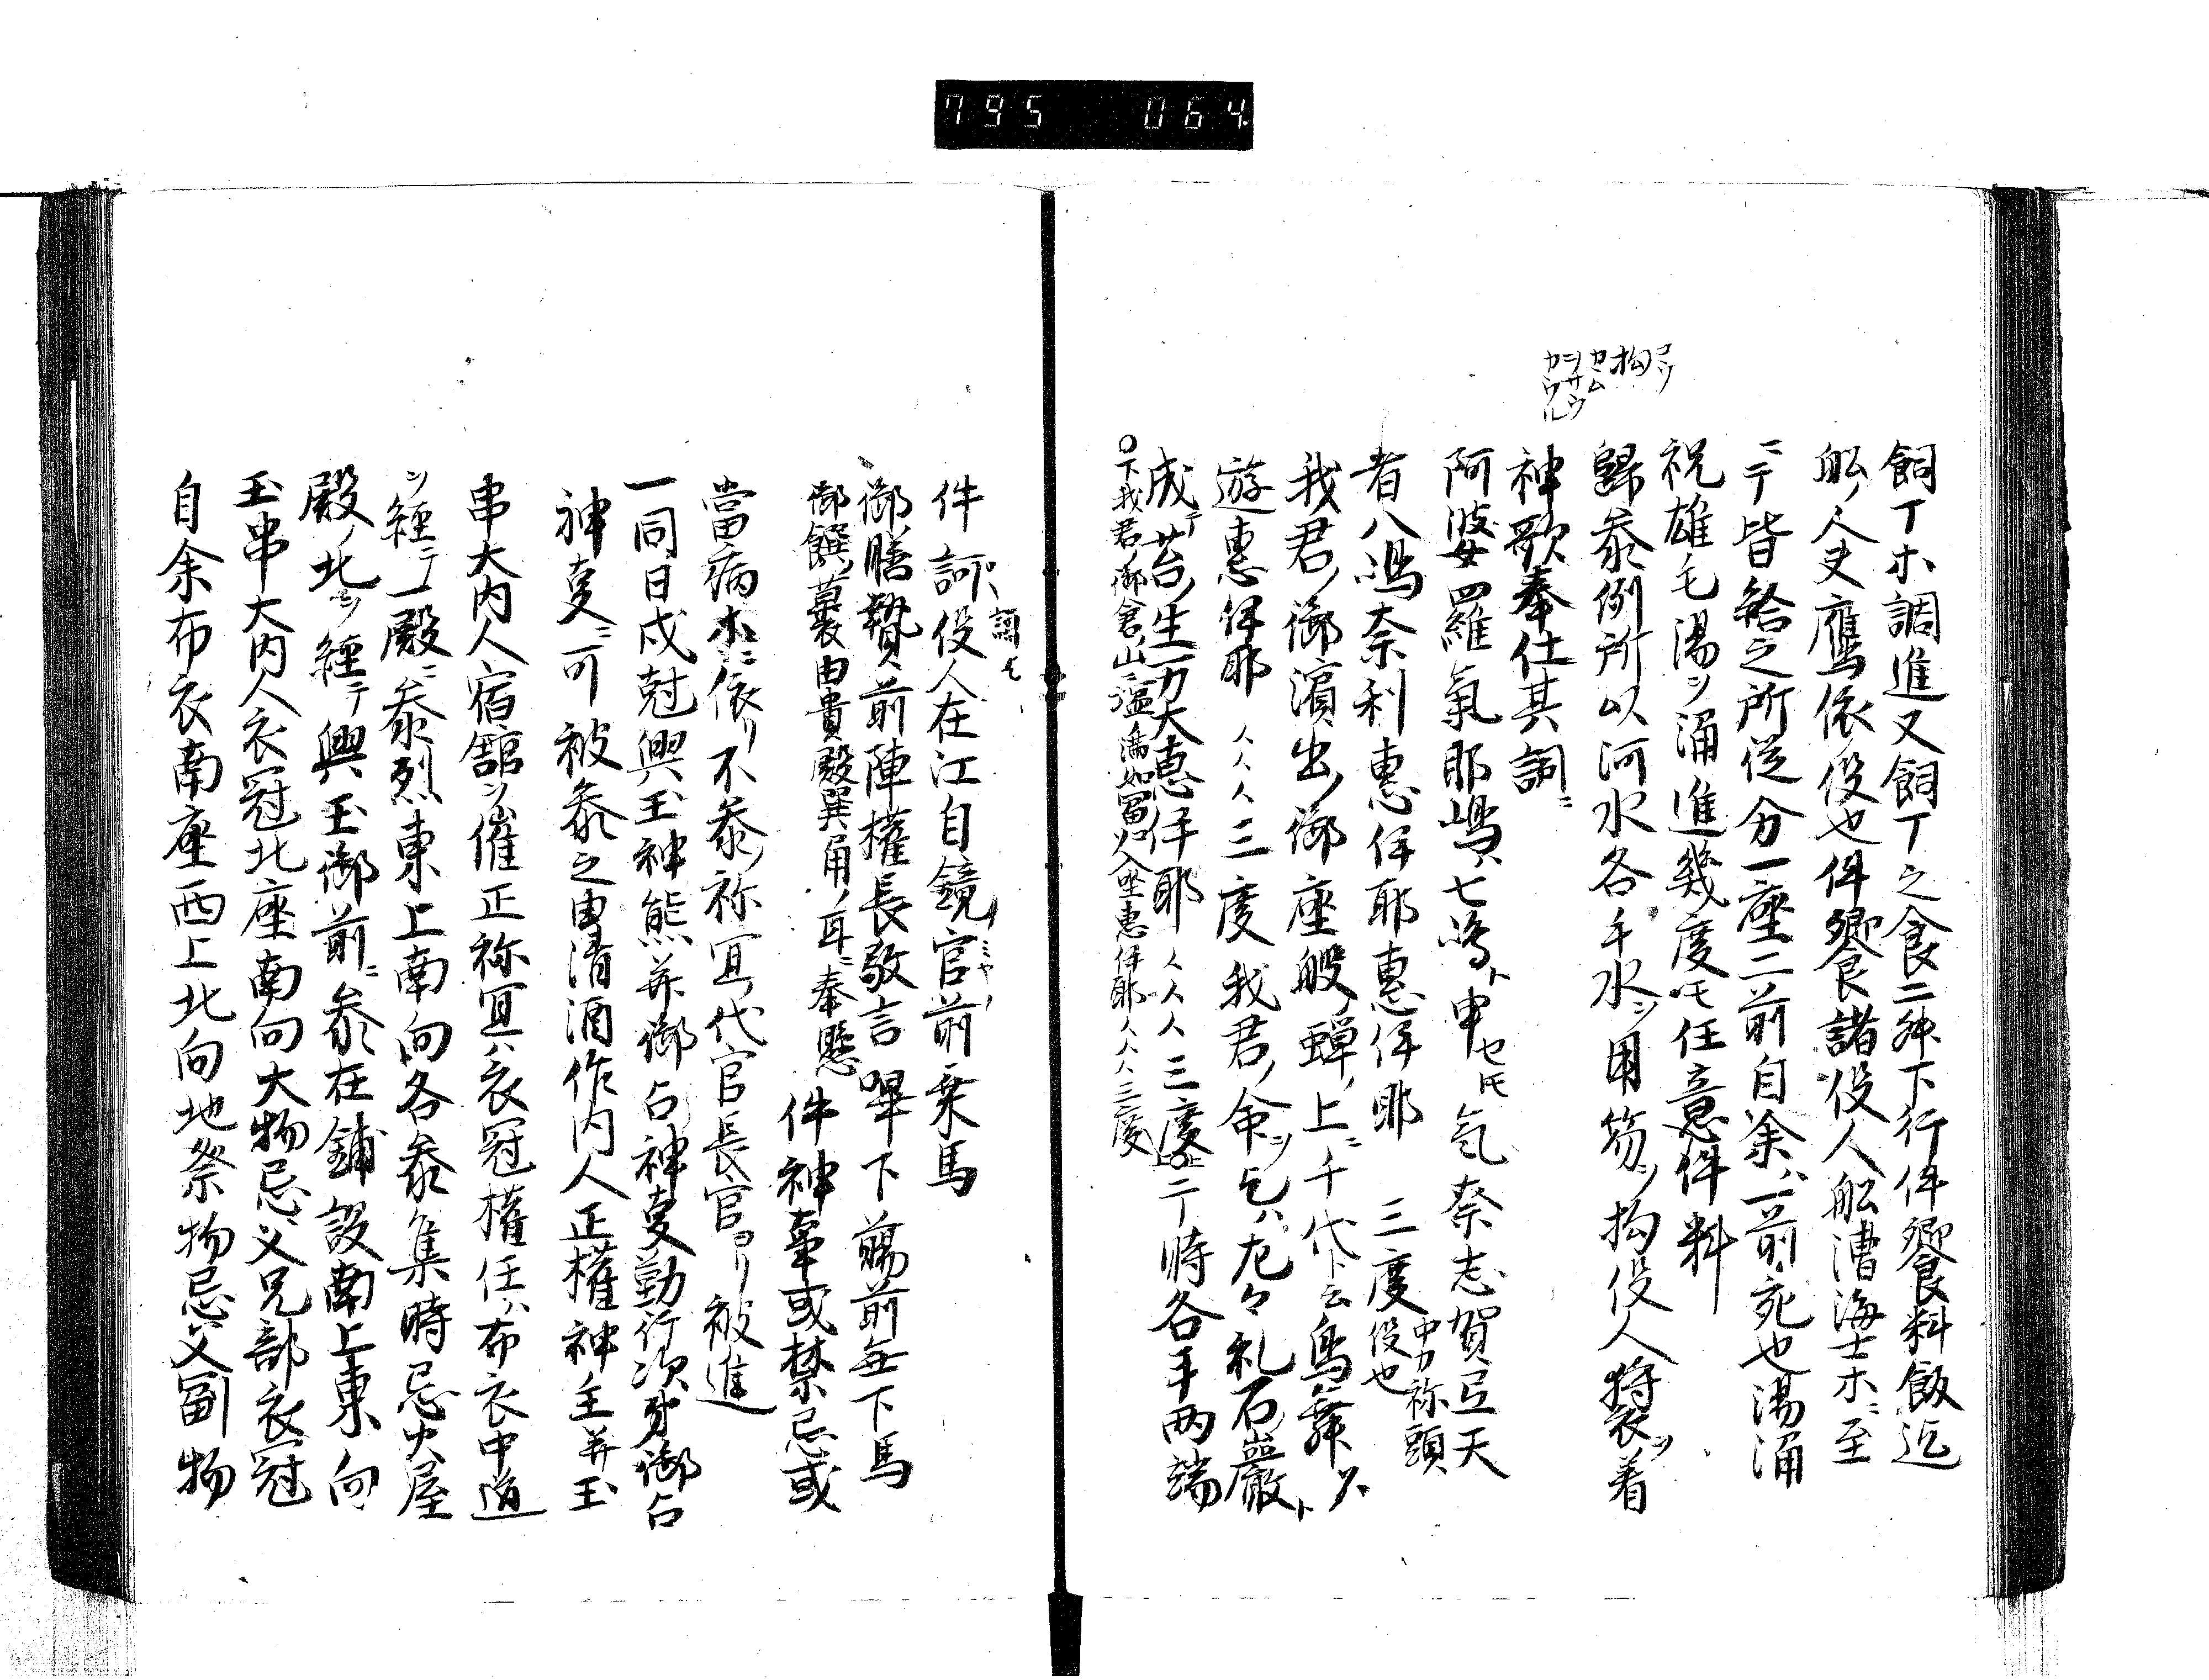 795 064
飼丁ホ調進又飼丁之食二舛下行件饗料飯迄
舩ノ人夫鷹依役也件饗食諸役人舩漕海士ホニ至
ニテ皆給之所従分一座二前自余ハ一前宛也湯涌
祝雄毛湯ヲ涌進幾度ニモ任意件料
歸参例所以河水各手水ヲ用笏ヲ拘役人狩衣ヲ着
拘コウ
カヽム
シサウ
カウル
神歌奉仕其詞ニ
阿婆羅氣耶嶋ハ七嶋ト申セトモ氣奈志賀豆天
者八嶋奈利惠伊耶惠伊耶 三度 中カ祢頭役也
我君ノ御濱出ノ御座舩ノ蟬ノ上ニ千代ト云鳥舞タ
遊惠伊耶 人々人三度我君ノ命ヲ乞ハ尤々礼石巖ト
成テ苔ノ生万大惠伊耶 人人人三度二丁時各手两端
○下我君ノ御倉山ニ温満如冨入坐惠伊耶人人人三度
件詞ハ役人在江自鏡ノミヤノ官前乗馬
詞モ
御膳贄ハ前陣權長敬言曝下 𩛰前無下馬
御饌ノ裹由貴殿巽角ノ耳ニ奉懸 件神事或禁忌或
當病ホニ依リ不参ノ祢冝代官長官ヨリ被進
一同日戌尅興玉神熊并御占神事勤行次第御占
神事ニ可被参之由清酒作内人正權神主并玉
串大内人宿舘ヲ催正祢冝ハ衣冠權任ハ布衣中道
ヲ經テ一殿ニ参烈東上南向各参集時忌火屋
殿ノ北ヲ經テ興玉御前ニ参在鋪設南上東向
玉串大内人衣冠北座南向大物忌父兄部衣冠
自余布衣南座西上北向地祭物忌父副物